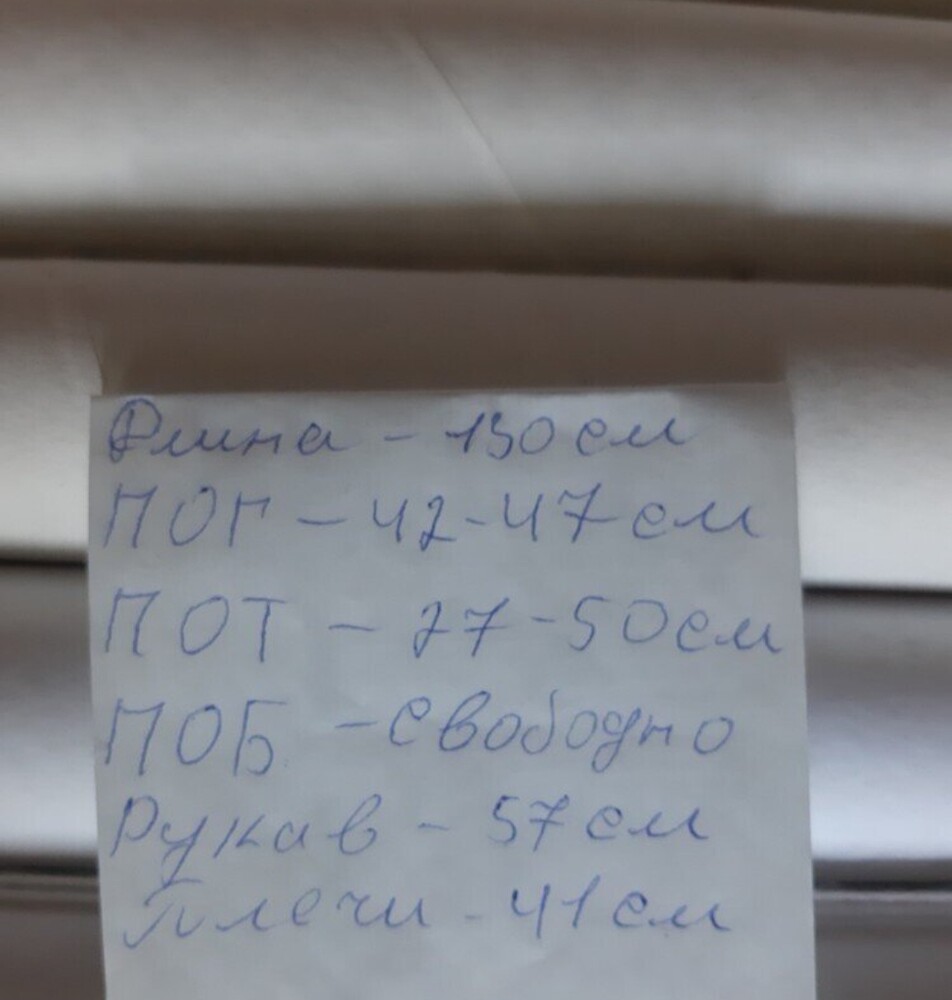 Длина - 130 см
ПОГ - 42-47 см
ПОТ - 27-50 см
ПОБ - свободно
Рукав - 57 см
Плечи - 41 см